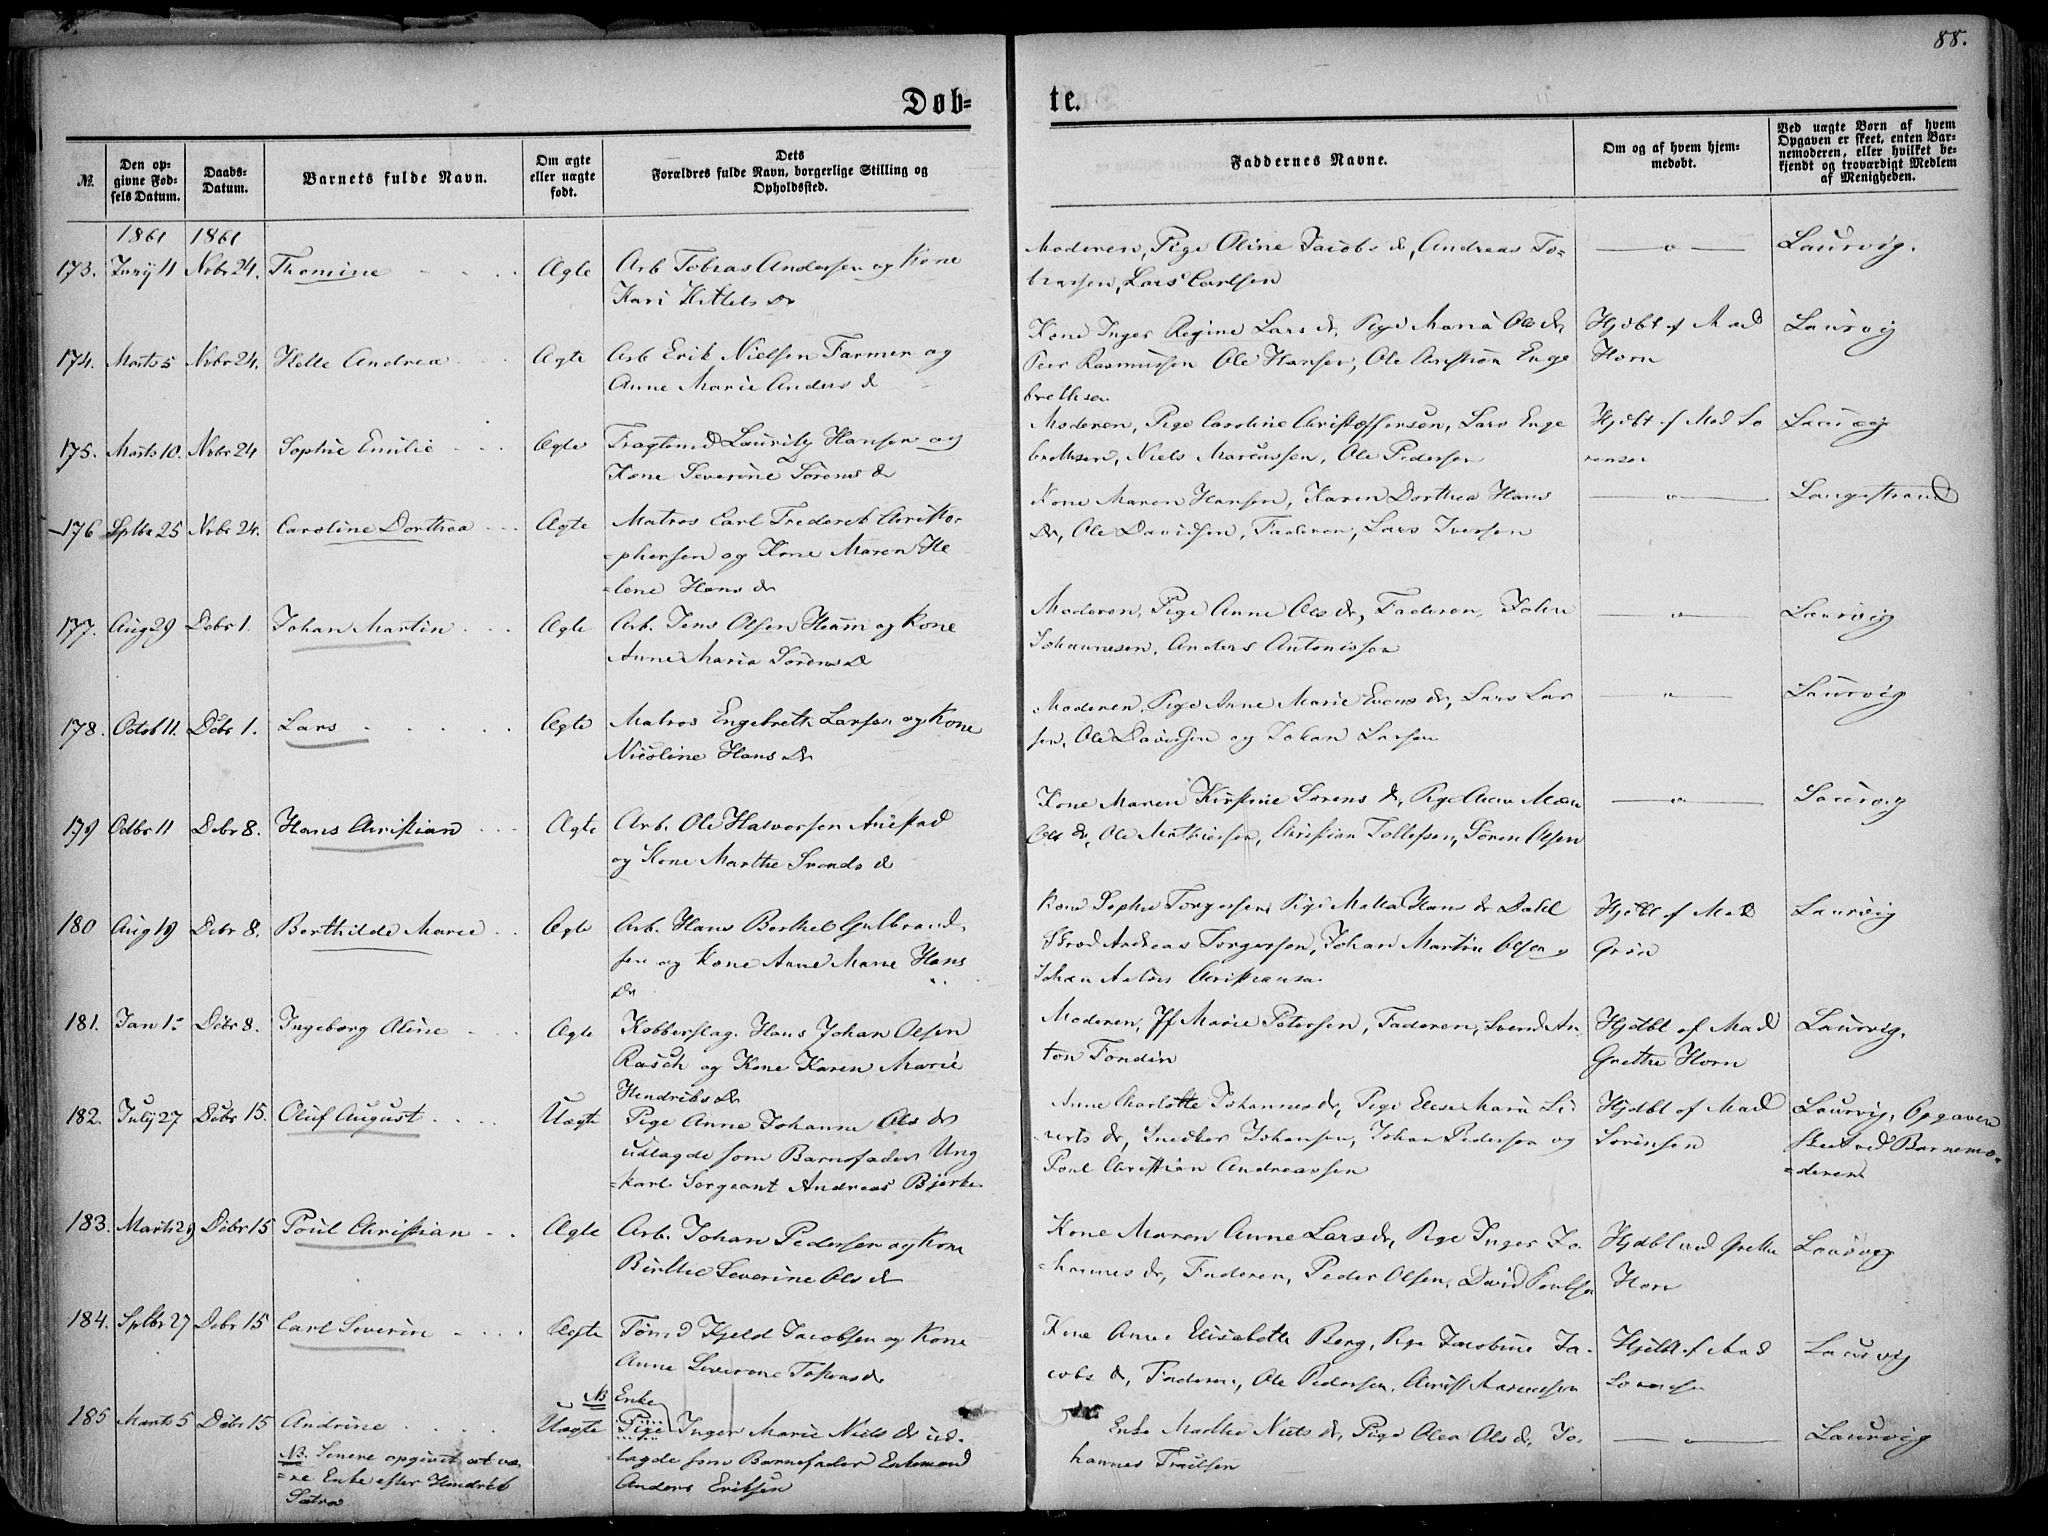 88.
Døb=
te.
№.
Den op=
givne Fød=
sels Datum.
Daabs=
Datum.
Barnets fulde Navn.
Om ægte
eller uægte
født.
Dets
Forældres fulde Navn, borgerlige Stilling og
Opholdssted.
Faddernes Navne.
Om og af hvem hjem=
medøbt.
Ved uægte Børn af hvem
Opgaven er skeet, enten Bar=
nemoderen, eller hvilket be=
kjendt og troværdigt Medlem
af Menigheden.
1861 1861
173. Juny 11 Nvbr 24. Thomine Ægte Arb Tobias Andersen og Kone
Kari Kittels Dr
Moderen, Pige Oline Jacobs dr, Andreas To=
biassen, Lars Carlsen
Laurvig.
174. Marts 5 Nvbr 24. Helle Andrea Ægte Arb Erik Nielsen Farmen og
Anne Marie Anders dr
Kone Inger Regine Lars dr, Pige Maria Ols dr,
Peer Rasmussen Ole Hansen, Ole Christian Enge
brethsen
Hjdbt af Mad
Horn
Laurvig
175. Marts 10. Nvbr 24 Sophie Emilie Ægte Fragtmd Lauritz Hansen og
Kone Severine Sørens dr
Moderen, Pige Caroline Christoffersen, Lars Enge
brethsen, Niels Marcussen, Ole Pedersen
Hjdbt af Mad So
rensen
Laurvig
176 Sptbr 25 Nvbr 24. Caroline Dorthea Ægte Matros Carl Frederik Christo=
=phersen og Kone Maren He
=lene Hans dr
Kone Maren Hansen, Karen Dorthea Hans
Dr, Ole Davidsen, Faderen, Lars Iversen
Langestrand
177. Aug 29 Debr 1. Johan Martin Ægte Arb. Jens Olsen Hvam og Kone
Anne Maria Sørens Dr
Moderen, Pige Anne Ols dr, Faderen, John
Johannesen, Anders Antonissen
Laurvig
178. Octob 11. Debr 1. Lars Ægte Matros Engebreth Larsen og Kone
Nicoline Hans Dr
Moderen, Pige Anne Marie Evens dr, Lars Lar
sen, Ole Davidsen og Johan Larsen
Laurvig
179 Octbr 11 Debr 8. Hans Christian Ægte Arb. Ole Halvorsen
og Kone Marthe Svends dr
Kone Maren Kirstine Sørens dr, Pige
Ols dr, Ole Mathiesen, Christian Tollefsen, Søren Olsen
Laurvig
180 Aug 19 Debr 8. Berthilde Marie Ægte Arb. Hans Berthel Gulbrand
sen og Kone Anne Marie Hans
Dr
Kone Sophie Torgersen, Pige Hans dr Dahl
Skrod Andreas Torgersen, Johan Martin Olsen,
Johan Christiansen
Hjdbt af Mad
Grøn
Laurvig
181. Jan Debr 8. Ingeborg Oline Ægte Kobberslag. Hans Johan Olsen
Rasch og Kone Karen Marie
Hendriks Dr
Moderen, Jf Marie Petersen, Faderen, Svend An
ton Fondin
Hjdbt af Mad
Grethe Horn
Laurvig.
182. July 27 Debr 15. Oluf August Uægte Pige Anne Johanne Ols dr
udlagde som Barnefader Ung
=karl Sergeant Andreas Bjerke
Anne Charlotte Johannes dr, Pige Elise Maria Si
verts dr, Snedker Johansen, Johan Pedersen og
Poul Christian Andreassen
Hjdbt af Mad
Sørensen
Laurvig, Opgaven
skeet ved Barnemo=
=deren
183. Marts 29 Debr 15 Poul Christian Ægte Arb. Johan Pedersen og Kone
Birthe Severine Ols dr
Kone Maren Anne Lars dr, Pige Inger Jo
=hannes dr, Faderen, Peder Olsen, David Poulsen
Hjdbt ved Grethe
Horn
Laurvig
184. Sptbr 27 Debr 15 Carl Severin Ægte Tømd Kjeld Jacobsen og Kone
Anne Severine Tobias dr
Kone Anne Elisabeth Berg, Pige Jacobine Ja=
cobs dr, Faderen, Ole Pedersen, Christ Marcussen
Hjdbt af Mad
Sørensen
Laurvig
NB Enke
185 Marts 5 Debr 15 Andrine Uægte Pige Inger Marie Niels dr ud=
=lagde som Barnefader Enkemand
Anders Eriksen
NB. Senere opgivet at væ
=re Enke efter Hendrik
Sætra
Enke Marthe Niels dr, Pige Olea Ols dr, Jo=
hannes Truelsen
Laurvig